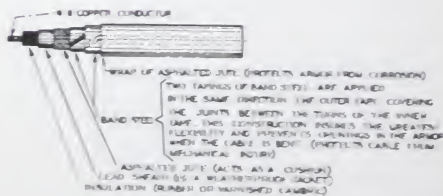 #8 COPPER CONDUCTOR
WRAP OF ASPHALTED JUTE (PROTECTS ARMOR FROM CORROSION)
TWO TAPINGS OF BAND STEEL ARE APPLIED
IN THE SAME DIRECTION THE OUTER TAPE COVERING
THE JOINTS BETWEEN THE TURNS OF THE INNER
BAND STEEL
TAPE. THIS CONSTRUCTION INSURES THE GREATEST
FLEXIBILITY AND PREVENTS OPENINGS IN THE ARMOR
WHEN THE CABLE IS BENT (PROTECTS CABLE FROM
MECHANICAL INJURY)
ASPHALTED JUTE (ACTS AS A CUSHION)
LEAD SHEATH (IS A WEATHERPROOF JACKET)
INSULATION (RUBBER OR VARNISHED CAMBRIC)